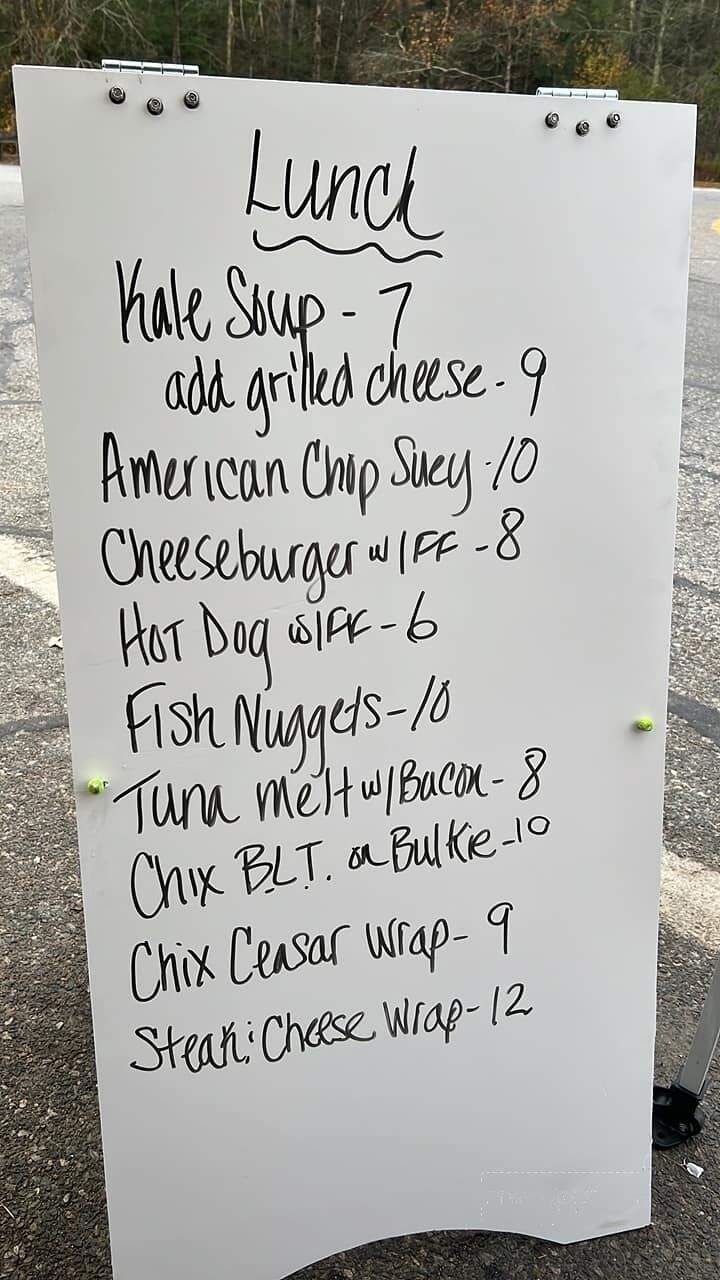 Lunch
Kale Soup - 7
add grilled cheese - 9
American Chop Suey - 10
Cheeseburger w/FF - 8
Hot Dog w/FF - 6
Fish Nuggets - 10
Tuna melt w/Bacon - 8
Chix B.L.T. on Bulkie - 10
Chix Ceasar Wrap - 9
Steak & Cheese Wrap - 12